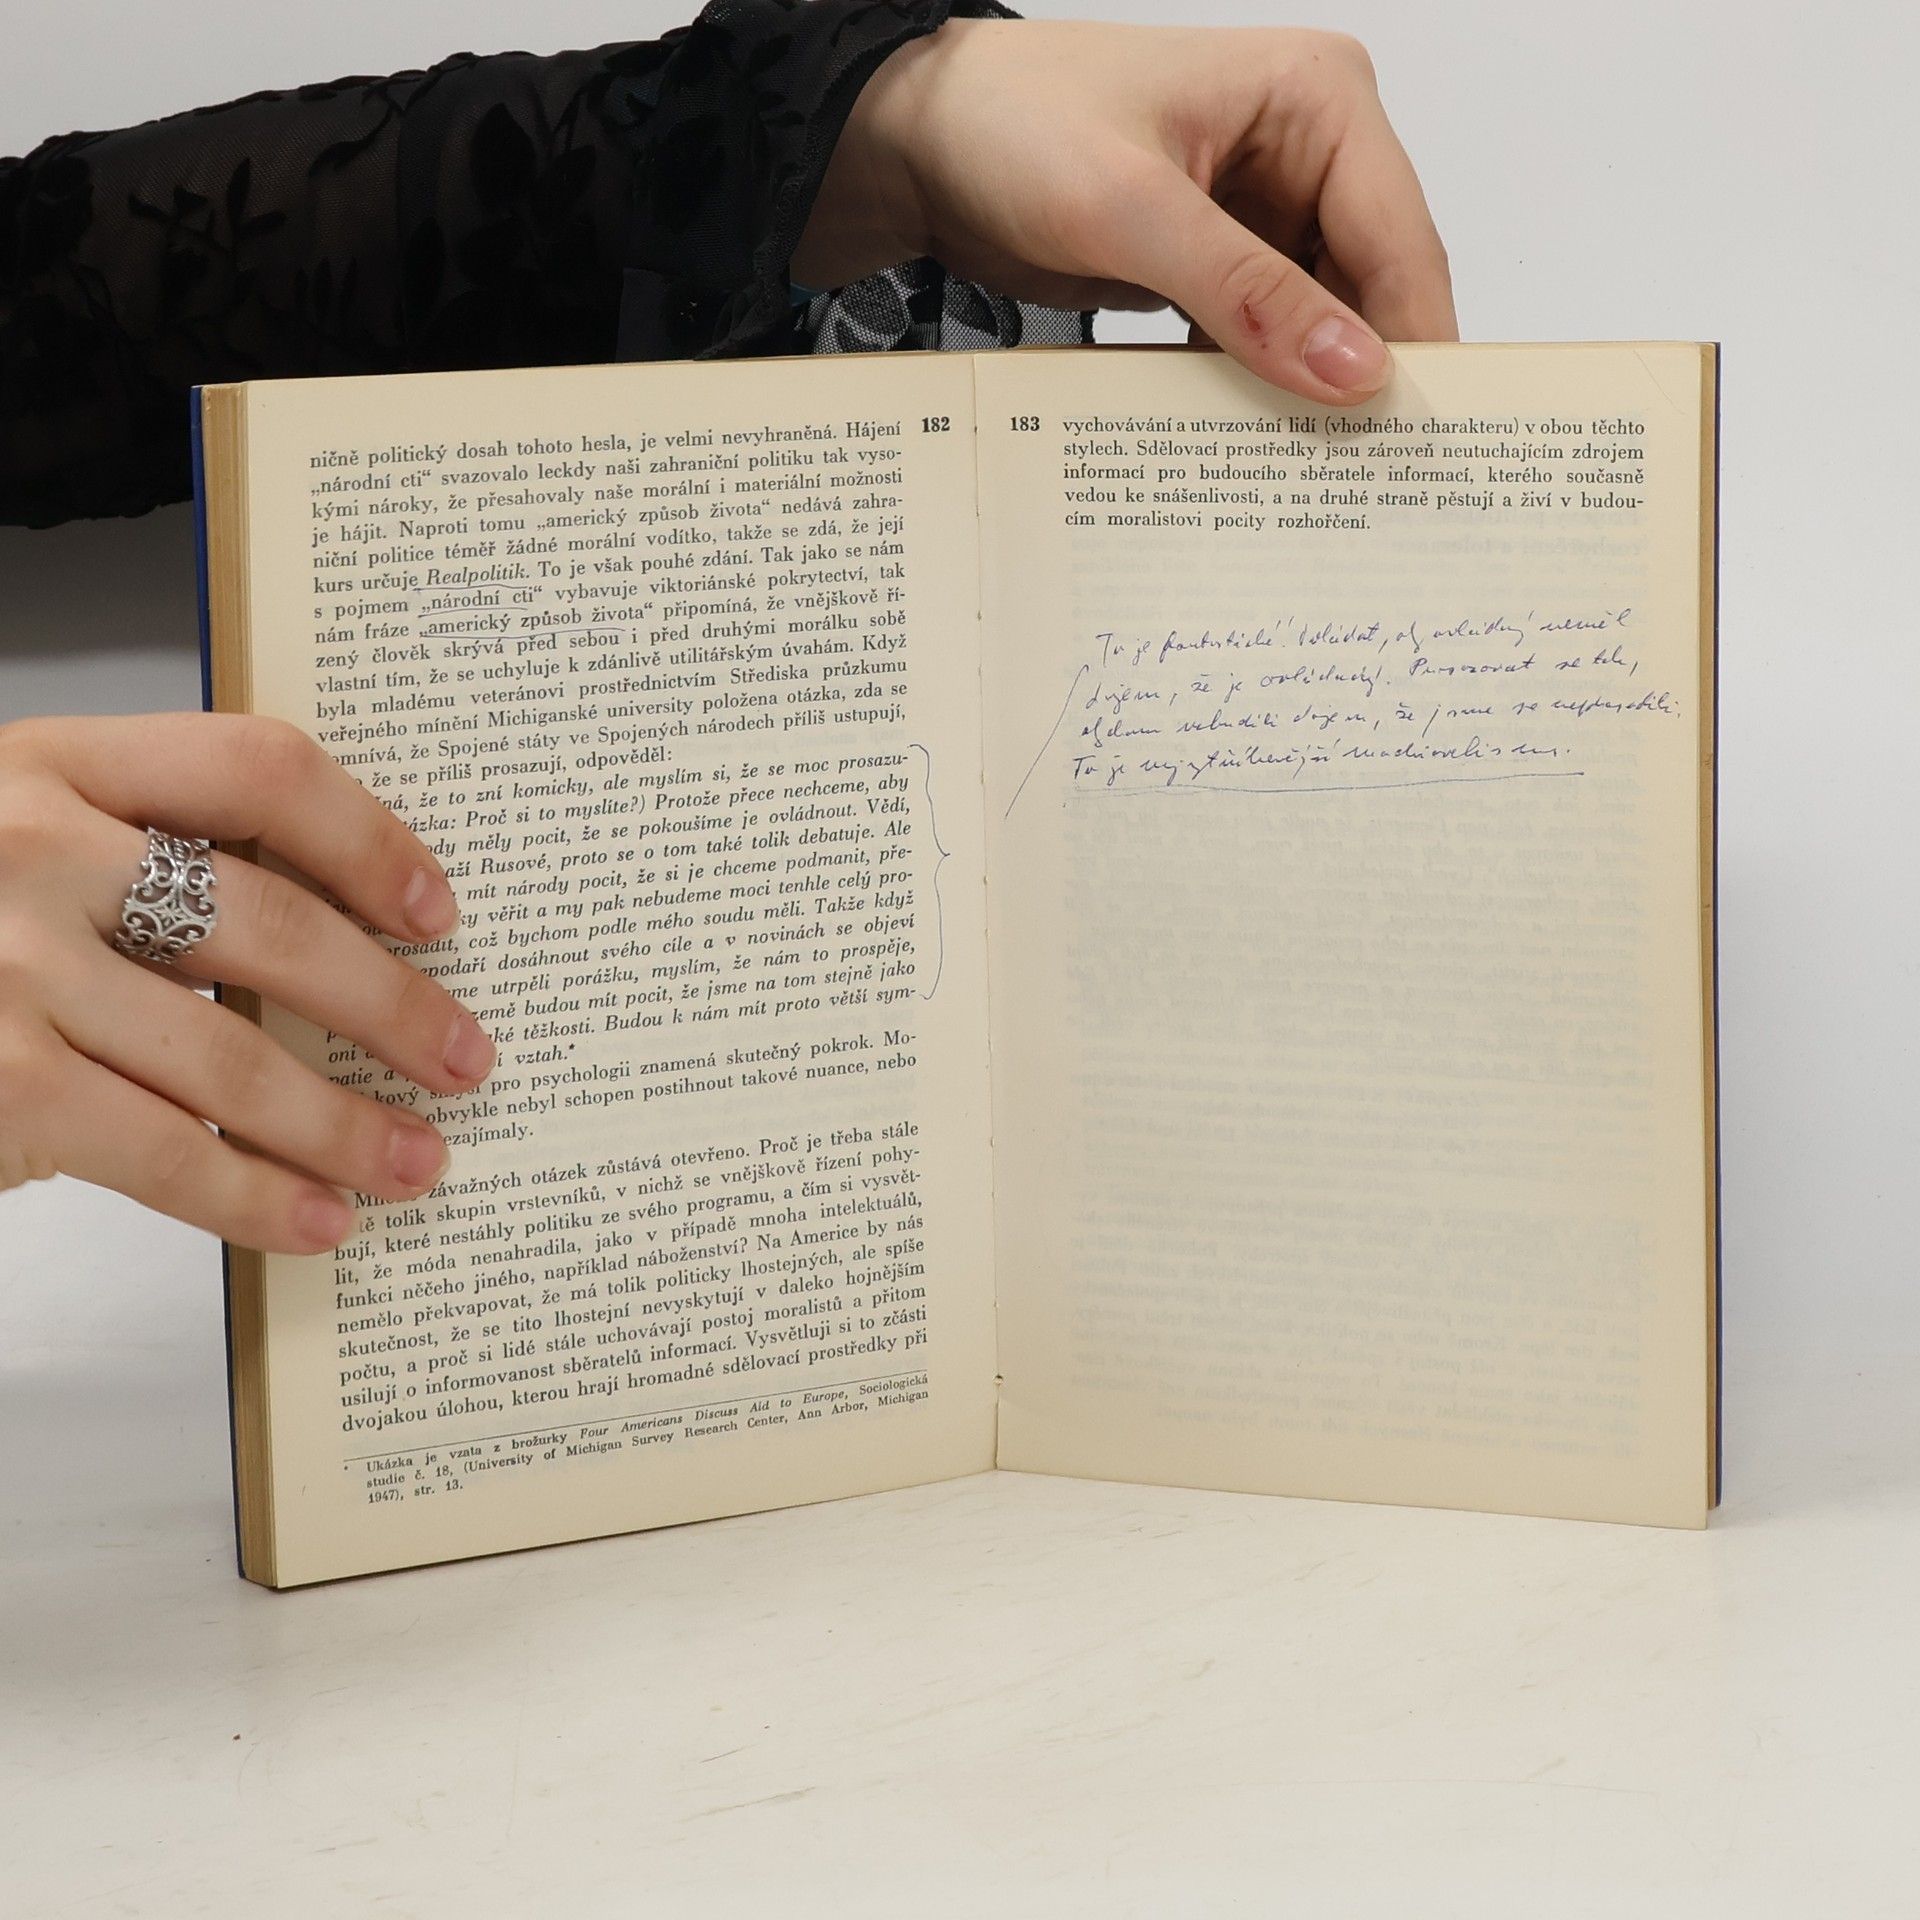 ničně politický dosah tohoto hesla, je velmi nevyhraněná. Hájení
182
„národní cti“ svazovalo leckdy naši zahraniční politiku tak vyso-
kými nároky, že přesahovaly naše morální i materiální možnosti
je hájit. Naproti tomu „americký způsob života“ nedává zahra-
niční politice téměř žádné morální vodítko, takže se zdá, že její
kurs určuje Realpolitik. To je však pouhé zdání. Tak jako se nám
s pojmem „národní cti“ vybavuje viktoriánské pokrytectví, tak
nám fráze „americký způsob života“ připomíná, že vnějškově ří-
zený člověk skrývá před sebou i před druhými morálku sobě
vlastní tím, že se uchyluje k zdánlivě utilitářským úvahám. Když
byla mladému veteránovi prostřednictvím Střediska průzkumu
veřejného mínění Michiganské university položena otázka, zda se
omnívá, že Spojené státy ve Spojených národech příliš ustupují,
že se příliš prosazují, odpověděl:
ná, že to zní komicky, ale myslím si, že se moc prosazu-
tázka: Proč si to myslíte?) Protože přece nechceme, aby
ody měly pocit, že se pokoušíme je ovládnout. Vědí,
aží Rusové, proto se o tom také tolik debatuje. Ale
mít národy pocit, že si je chceme podmanit, pře-
ky věřit a my pak nebudeme moci tenhle celý pro-
prosadit, což bychom podle mého soudu měli. Takže když
epodaří dosáhnout svého cíle a v novinách se objeví
me utrpěli porážku, myslím, že nám to prospěje,
země budou mít pocit, že jsme na tom stejně jako
oni aké těžkosti. Budou k nám mít proto větší sym-
patie a í vztah.*
kový smysl pro psychologii znamená skutečný pokrok. Mo-
obvykle nebyl schopen postihnout takové nuance, nebo
ezajímaly.
závažných otázek zůstává otevřeno. Proč je třeba stále
tě tolik skupin vrstevníků, v nichž se vnějškově řízení pohy-
bují, které nestáhly politiku ze svého programu, a čím si vysvět-
lit, že móda nenahradila, jako v případě mnoha intelektuálů,
funkci něčeho jiného, například náboženství? Na Americe by nás
nemělo překvapovat, že má tolik politicky lhostejných, ale spíše
skutečnost, že se tito lhostejní nevyskytují v daleko hojnějším
počtu, a proč si lidé stále uchovávají postoj moralistů a přitom
usilují o informovanost sběratelů informací. Vysvětluji si to zčásti
dvojakou úlohou, kterou hrají hromadné sdělovací prostředky při
* Ukázka je vzata z brožurky Four Americans Discuss Aid to Europe, Sociologická
studie č. 18, (University of Michigan Survey Research Center, Ann Arbor, Michigan
1947), str. 13.
183
vychovávání a utvrzování lidí (vhodného charakteru) v obou těchto
stylech. Sdělovací prostředky jsou zároveň neutuchajícím zdrojem
informací pro budoucího sběratele informací, kterého současně
vedou ke snášenlivosti, a na druhé straně pěstují a živí v budou-
cím moralistovi pocity rozhořčení.
To je fantastické! Ovládat, aby ovládaný neměl
dojem, že je ovládaný. Prosazovat se tak,
abychom vzbudili dojem, že jsme se neprosadili.
To je nejvytříbenější machiavelismus.